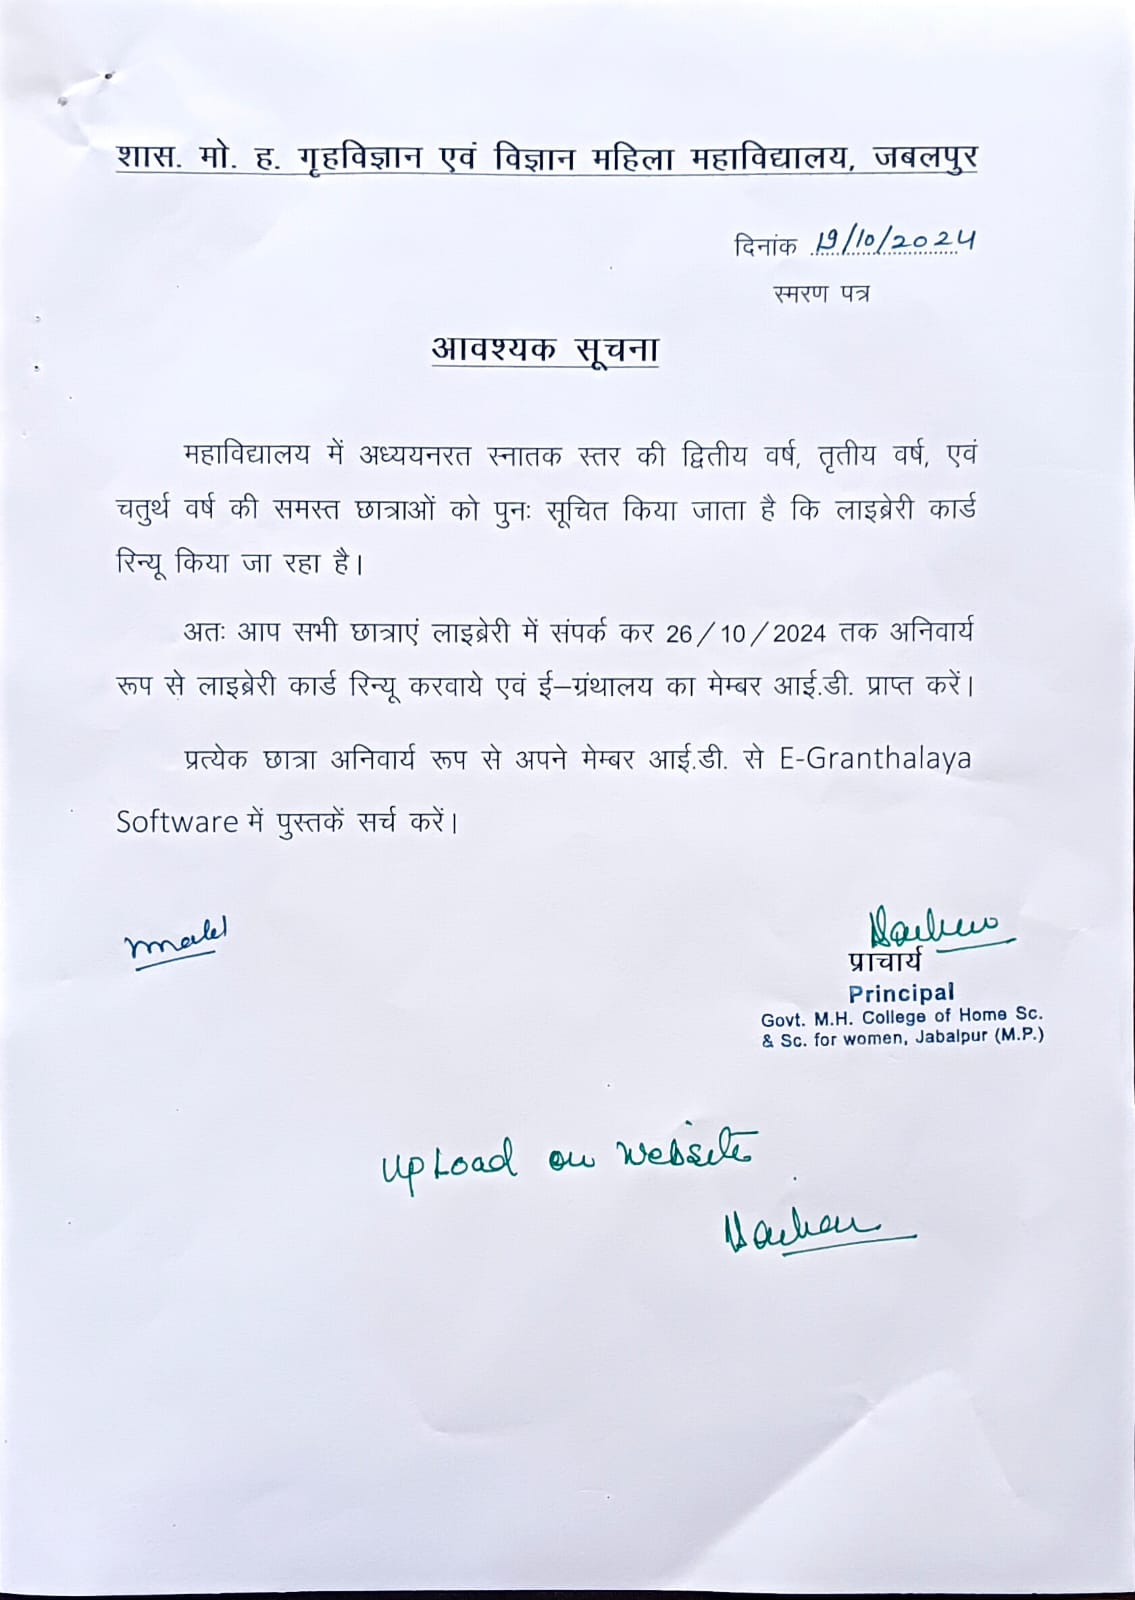 शास. मो. ह. गृहविज्ञान एवं विज्ञान महिला महाविद्यालय, जबलपुर
दिनांक 19/10/2024
स्मरण पत्र
आवश्यक सूचना
महाविद्यालय में अध्ययनरत स्नातक स्तर की द्वितीय वर्ष, तृतीय वर्ष, एवं
चतुर्थ वर्ष की समस्त छात्राओं को पुनः सूचित किया जाता है कि लाइब्रेरी कार्ड
रिन्यू किया जा रहा है।
अतः आप सभी छात्राएं लाइब्रेरी में संपर्क कर 26/10/2024 तक अनिवार्य
रूप से लाइब्रेरी कार्ड रिन्यू करवाये एवं ई–ग्रंथालय का मेम्बर आई.डी. प्राप्त करें।
प्रत्येक छात्रा अनिवार्य रूप से अपने मेम्बर आई.डी. से E-Granthalaya
Software में पुस्तकें सर्च करें।
प्राचार्य
Principal
Govt. M.H. College of Home Sc.
& Sc. for women, Jabalpur (M.P.)
upLoad on website